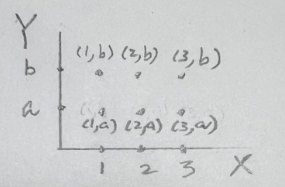 Y
(1,b) (2,b) (3,b)
b
a
(1,a) (2,a) (3,a)
1 2 3 X